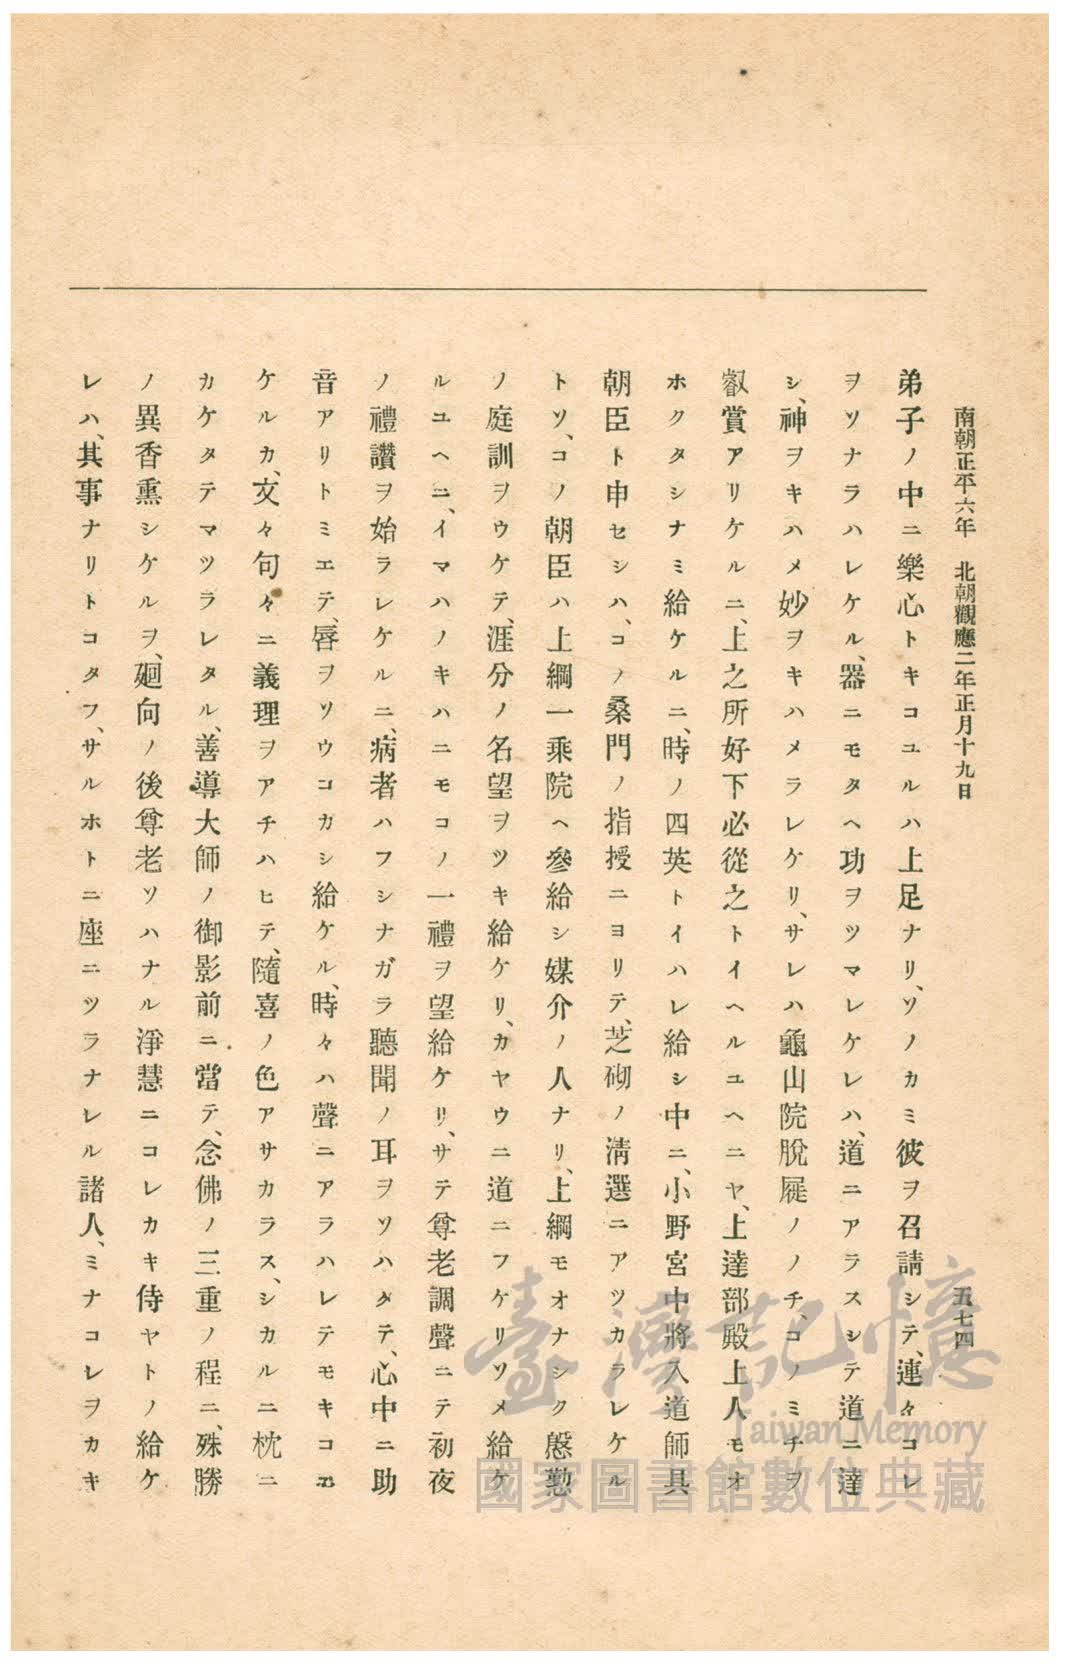 南朝正平六年　北朝觀應二年正月十九日　五七四
弟子ノ中ニ樂心トキコユルハ上足ナリ、ソノカミ彼ヲ召請シテ、連々コレ
ヲソナラハレケル、器ニモタヘ功ヲツマレケレハ、道ニアラスシテ道ニ達
シ、神ヲキハメ妙ヲキハメラレケリ、サレハ龜山院脫屣ノノチ、コノミチヲ
叡賞アリケルニ、上之所好下必從之トイヘルユヘニヤ、上達部殿上人モオ
ホクタシナミ給ケルニ、時ノ四英トイハレ給シ中ニ、小野宮中將入道師具
朝臣ト申セシハ、コノ桑門ノ指授ニヨリテ、芝砌ノ淸選ニアツカラレケル
トソ、コノ朝臣ハ上綱一乘院ヘ參給シ媒介ノ人ナリ、上綱モオナシク慇懃
ノ庭訓ヲウケテ、涯分ノ名望ヲツキ給ケリ、カヤウニ道ニフケリソメ給ケ
ルユヘニ、イマハノキハニモコノ一禮ヲ望給ケリ、サテ尊老調聲ニテ初夜
ノ禮讚ヲ始ラレケルニ、病者ハフシナガラ聽聞ノ耳ヲソハダテ、心中ニ助
音アリトミエテ、唇ヲソウコカシ給ケル、時々ハ聲ニアラハレテモキコエ
ケルカ、文々句々ニ義理ヲアチハヒテ、隨喜ノ色アサカラス、シカルニ枕ニ
カケタテマツラレタル、善導大師ノ御影前ニ當テ、念佛ノ三重ノ程ニ、殊勝
ノ異香薰シケルヲ、廻向ノ後尊老ソハナル淨慧ニコレカキ侍ヤトノ給ケ
レハ、其事ナリトコタフ、サルホトニ座ニツラナレル諸人、ミナコレヲカキ
臺灣記憶
Taiwan Memory
國家圖書館數位典藏